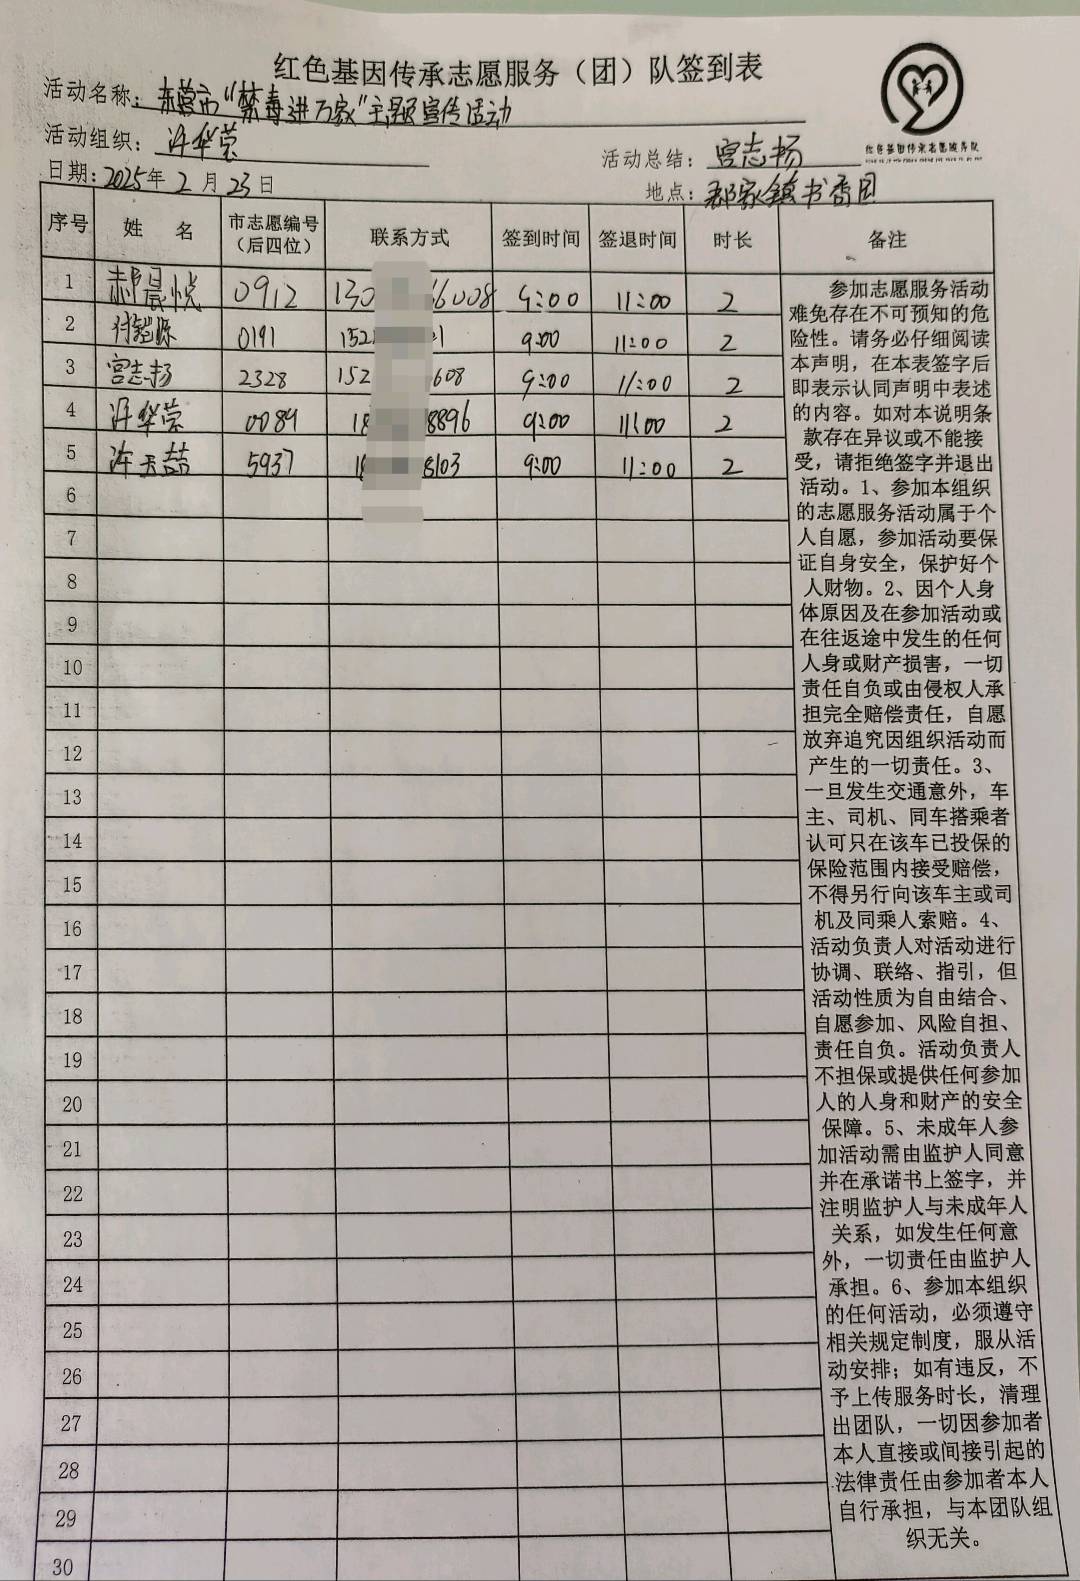 红色基因传承志愿服务（团）队签到表
活动名称：东营市“禁毒进万家”主题宣传活动
活动组织：许华莹
活动总结：宫志扬
红色基因传承志愿服务队
日期：2025年2月23日
地点：郝家镇书香园
序号 姓 名 市志愿编号（后四位） 联系方式 签到时间 签退时间 时长 备注
1 郝晨悦 0912 130 66008 9:00 11:00 2
2 0191 152 1 9:00 11:00 2
3 宫志扬 2328 152 608 9:00 11:00 2
4 许华莹 0089 18 8896 9:00 11:00 2
5 许玉喆 5937 18 8103 9:00 11:00 2
6
7
8
9
10
11
12
13
14
15
16
17
18
19
20
21
22
23
24
25
26
27
28
29
30
参加志愿服务活动
难免存在不可预知的危
险性。请务必仔细阅读
本声明，在本表签字后
即表示认同声明中表述
的内容。如对本说明条
款存在异议或不能接
受，请拒绝签字并退出
活动。1、参加本组织
的志愿服务活动属于个
人自愿，参加活动要保
证自身安全，保护好个
人财物。2、因个人身
体原因及在参加活动或
在往返途中发生的任何
人身或财产损害，一切
责任自负或由侵权人承
担完全赔偿责任，自愿
放弃追究因组织活动而
产生的一切责任。3、
一旦发生交通意外，车
主、司机、同车搭乘者
认可只在该车已投保的
保险范围内接受赔偿，
不得另行向该车主或司
机及同乘人索赔。4、
活动负责人对活动进行
协调、联络、指引，但
活动性质为自由结合、
自愿参加、风险自担、
责任自负。活动负责人
不担保或提供任何参加
人的人身和财产的安全
保障。5、未成年人参
加活动需由监护人同意
并在承诺书上签字，并
注明监护人与未成年人
关系，如发生任何意
外，一切责任由监护人
承担。6、参加本组织
的任何活动，必须遵守
相关规定制度，服从活
动安排；如有违反，不
予上传服务时长，清理
出团队，一切因参加者
本人直接或间接引起的
法律责任由参加者本人
自行承担，与本团队组
织无关。